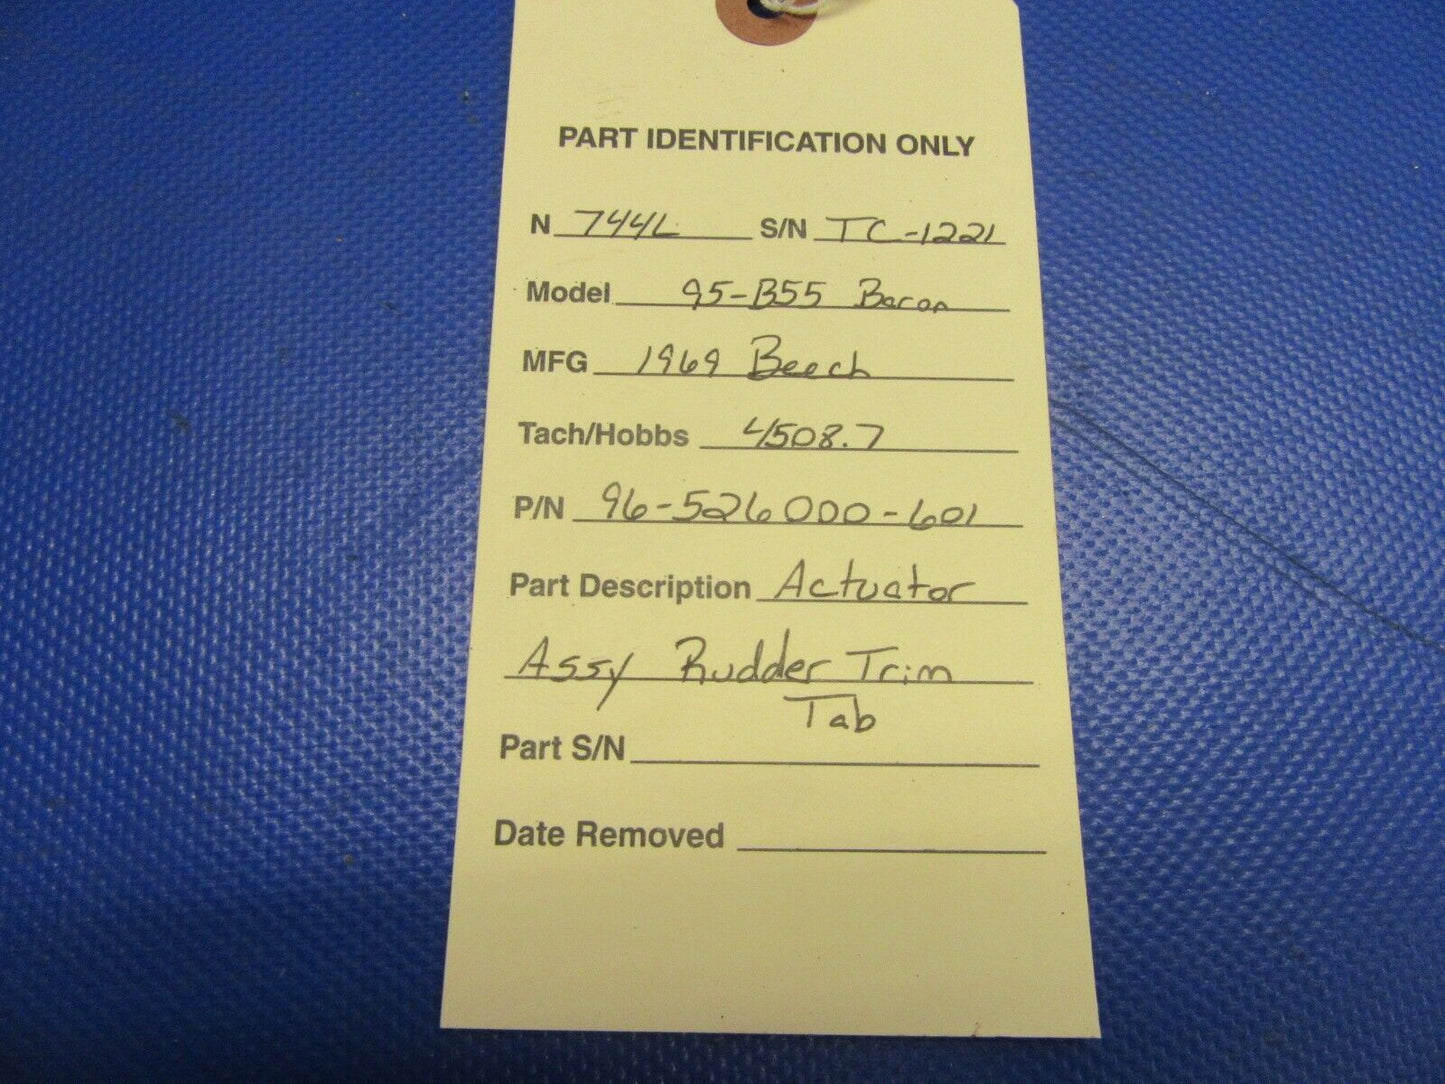 PART IDENTIFICATION ONLY
N 744L S/N TC-1221
Model 95-B55 Baron
MFG 1969 Beech
Tach/Hobbs 4508.7
P/N 96-526000-601
Part Description Actuator
Assy Rudder Trim
Tab
Part S/N
Date Removed